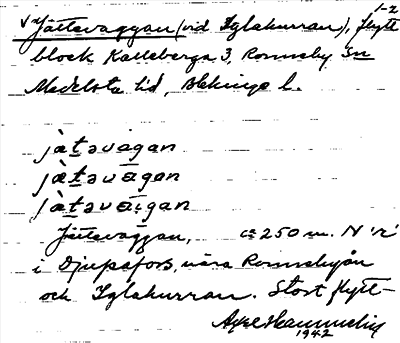 1-2
v Jättevaggan (vid Iglakurran), flytt
block Kalleberga 3, Ronneby Sn
Medelsta hd, Blekinge l.
jàtəvagan
jàtəvāgan
jàtəvāgan
Jättevaggan, ca 250 m. N
i Djupafors, nära Ronnebyån
och Iglakurran. Stort flytt-
Axel
1942